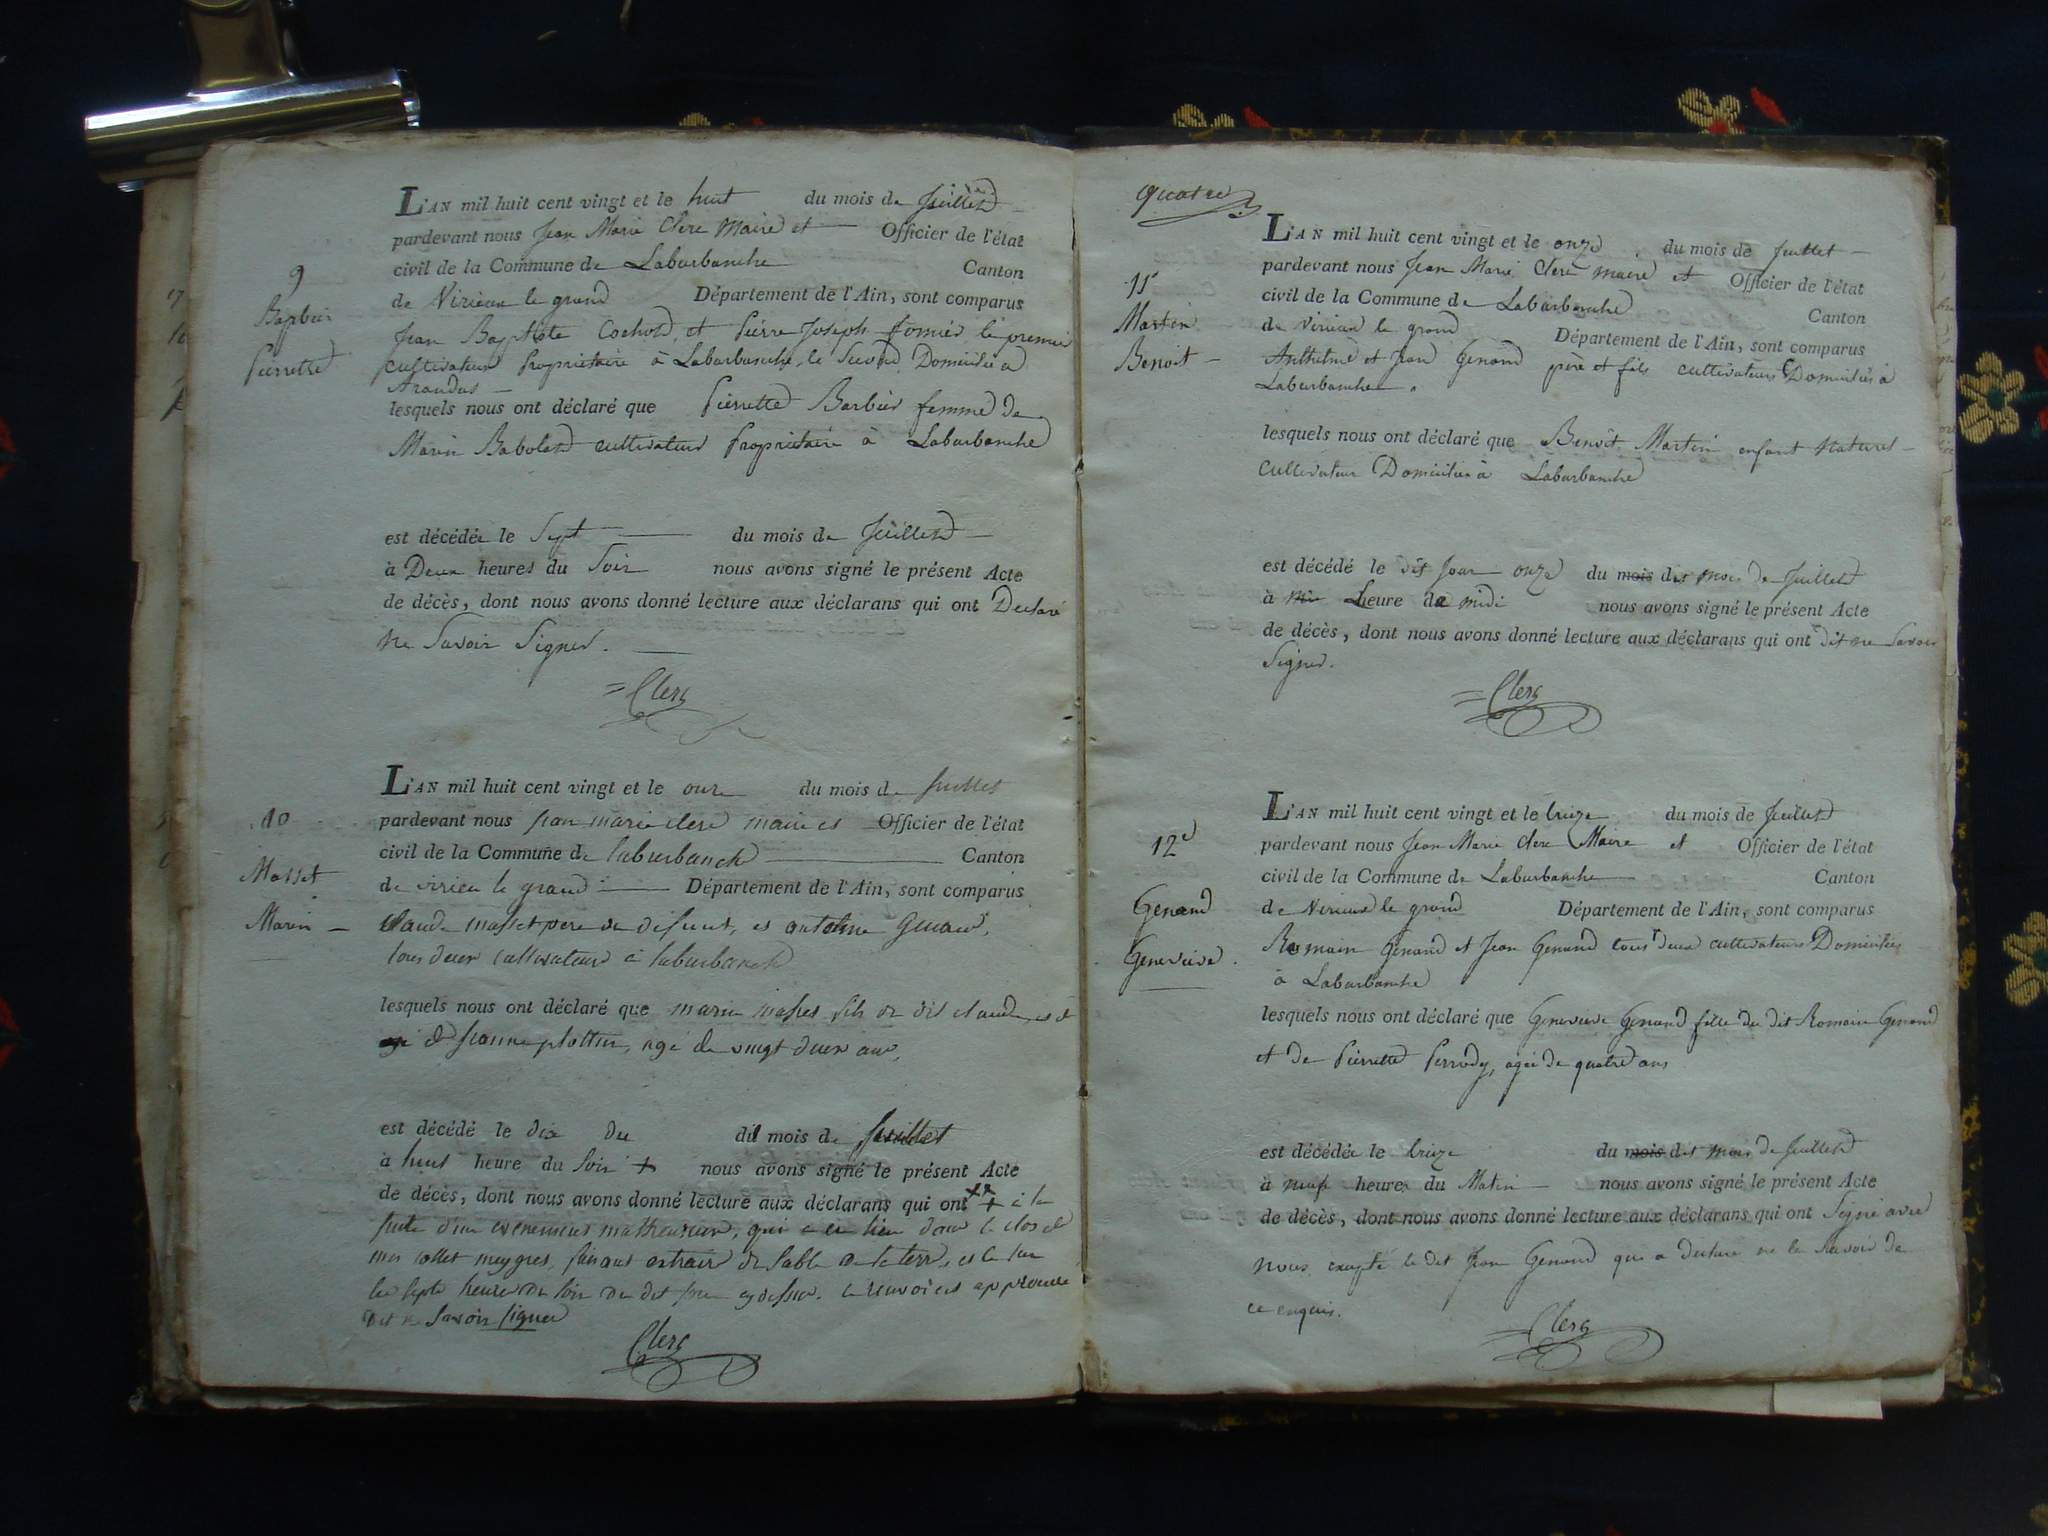 L'AN mil huit cent vingt et le huit du mois de Juillet
pardevant nous Jean Marie Clerc Maire et Officier de l'état
civil de la Commune de Laburbanche Canton
de Virieux le grand Département de l'Ain, sont comparus
9
Barbier
Pierrette
Jean Baptiste Cochod, et Pierre Joseph le premier
cultivateur Propriétaire à Laburbanche, le Second Domicilié à
Arandas
lesquels nous ont déclaré que Pierrette Barbier femme de
Marin Babolat cultivateur Propriétaire à Laburbanche
est décédée le Sept du mois de Juillet
à Deux heures du Soir nous avons signé le présent Acte
de décès, dont nous avons donné lecture aux déclarans qui ont Declaré
ne Savoir Signer.
Clerc
L'AN mil huit cent vingt et le onze du mois de Juillet
pardevant nous jean marie clerc maire et Officier de l'état
civil de la Commune de laburbanche Canton
de virieu le grand Département de l'Ain, sont comparus
10
Masset
Marin
Claude masset pere du defunt, et antoine Genand,
tous deux cultivateurs à laburbanche
lesquels nous ont déclaré que marin masset fils du dit claude, et
de jeanne plottin, agé de vingt deux ans,
est décédé le dix du dit mois de Juillet
à huit heure du Soir + nous avons signé le présent Acte
de décès, dont nous avons donné lecture aux déclarans qui ont + à la
suite d'un evenement malheureux, qui a eu lieu dans le clos de
extraire du sable de la terre, et
les sept heure du soir du dit jour cydessus. le renvoi est approuvé
dit ne Savoir signer
Clerc
quatre
L'AN mil huit cent vingt et le onze du mois de Juillet
pardevant nous Jean Marie Clerc maire et Officier de l'état
civil de la Commune de Laburbanche Canton
de Virieux le grand Département de l'Ain, sont comparus
11e
Martin
Benoit
Anthelme et Jean Genand père et fils cultivateurs Domiciliés à
Laburbanche.
lesquels nous ont déclaré que Benoit Martin enfant Naturel
Cultivateur Domicilié à Laburbanche
est décédé le dit Jour onze du mois dit mois de Juillet
à heure de midi nous avons signé le présent Acte
de décès, dont nous avons donné lecture aux déclarans qui ont dit ne Savoir
Signer.
Clerc
L'AN mil huit cent vingt et le treize du mois de Juillet
pardevant nous Jean Marie Clerc Maire et Officier de l'état
civil de la Commune de Laburbanche Canton
de Virieux le grand Département de l'Ain, sont comparus
12e
Genand
Genevieve.
Romain Genand et Jean Genand tous deux cultivateurs Domiciliés
à Laburbanche
lesquels nous ont déclaré que Genevieve Genand fille du dit Romain Genand
et de Pierrette Perrody, agée de quatre ans
est décédée le treize du mois dit mois de Juillet
à neuf heures du Matin nous avons signé le présent Acte
de décès, dont nous avons donné lecture aux déclarans qui ont Signé avec
nous excepté le dit Jean Genand qui a declaré ne le Savoir de
ce enquis.
Clerc